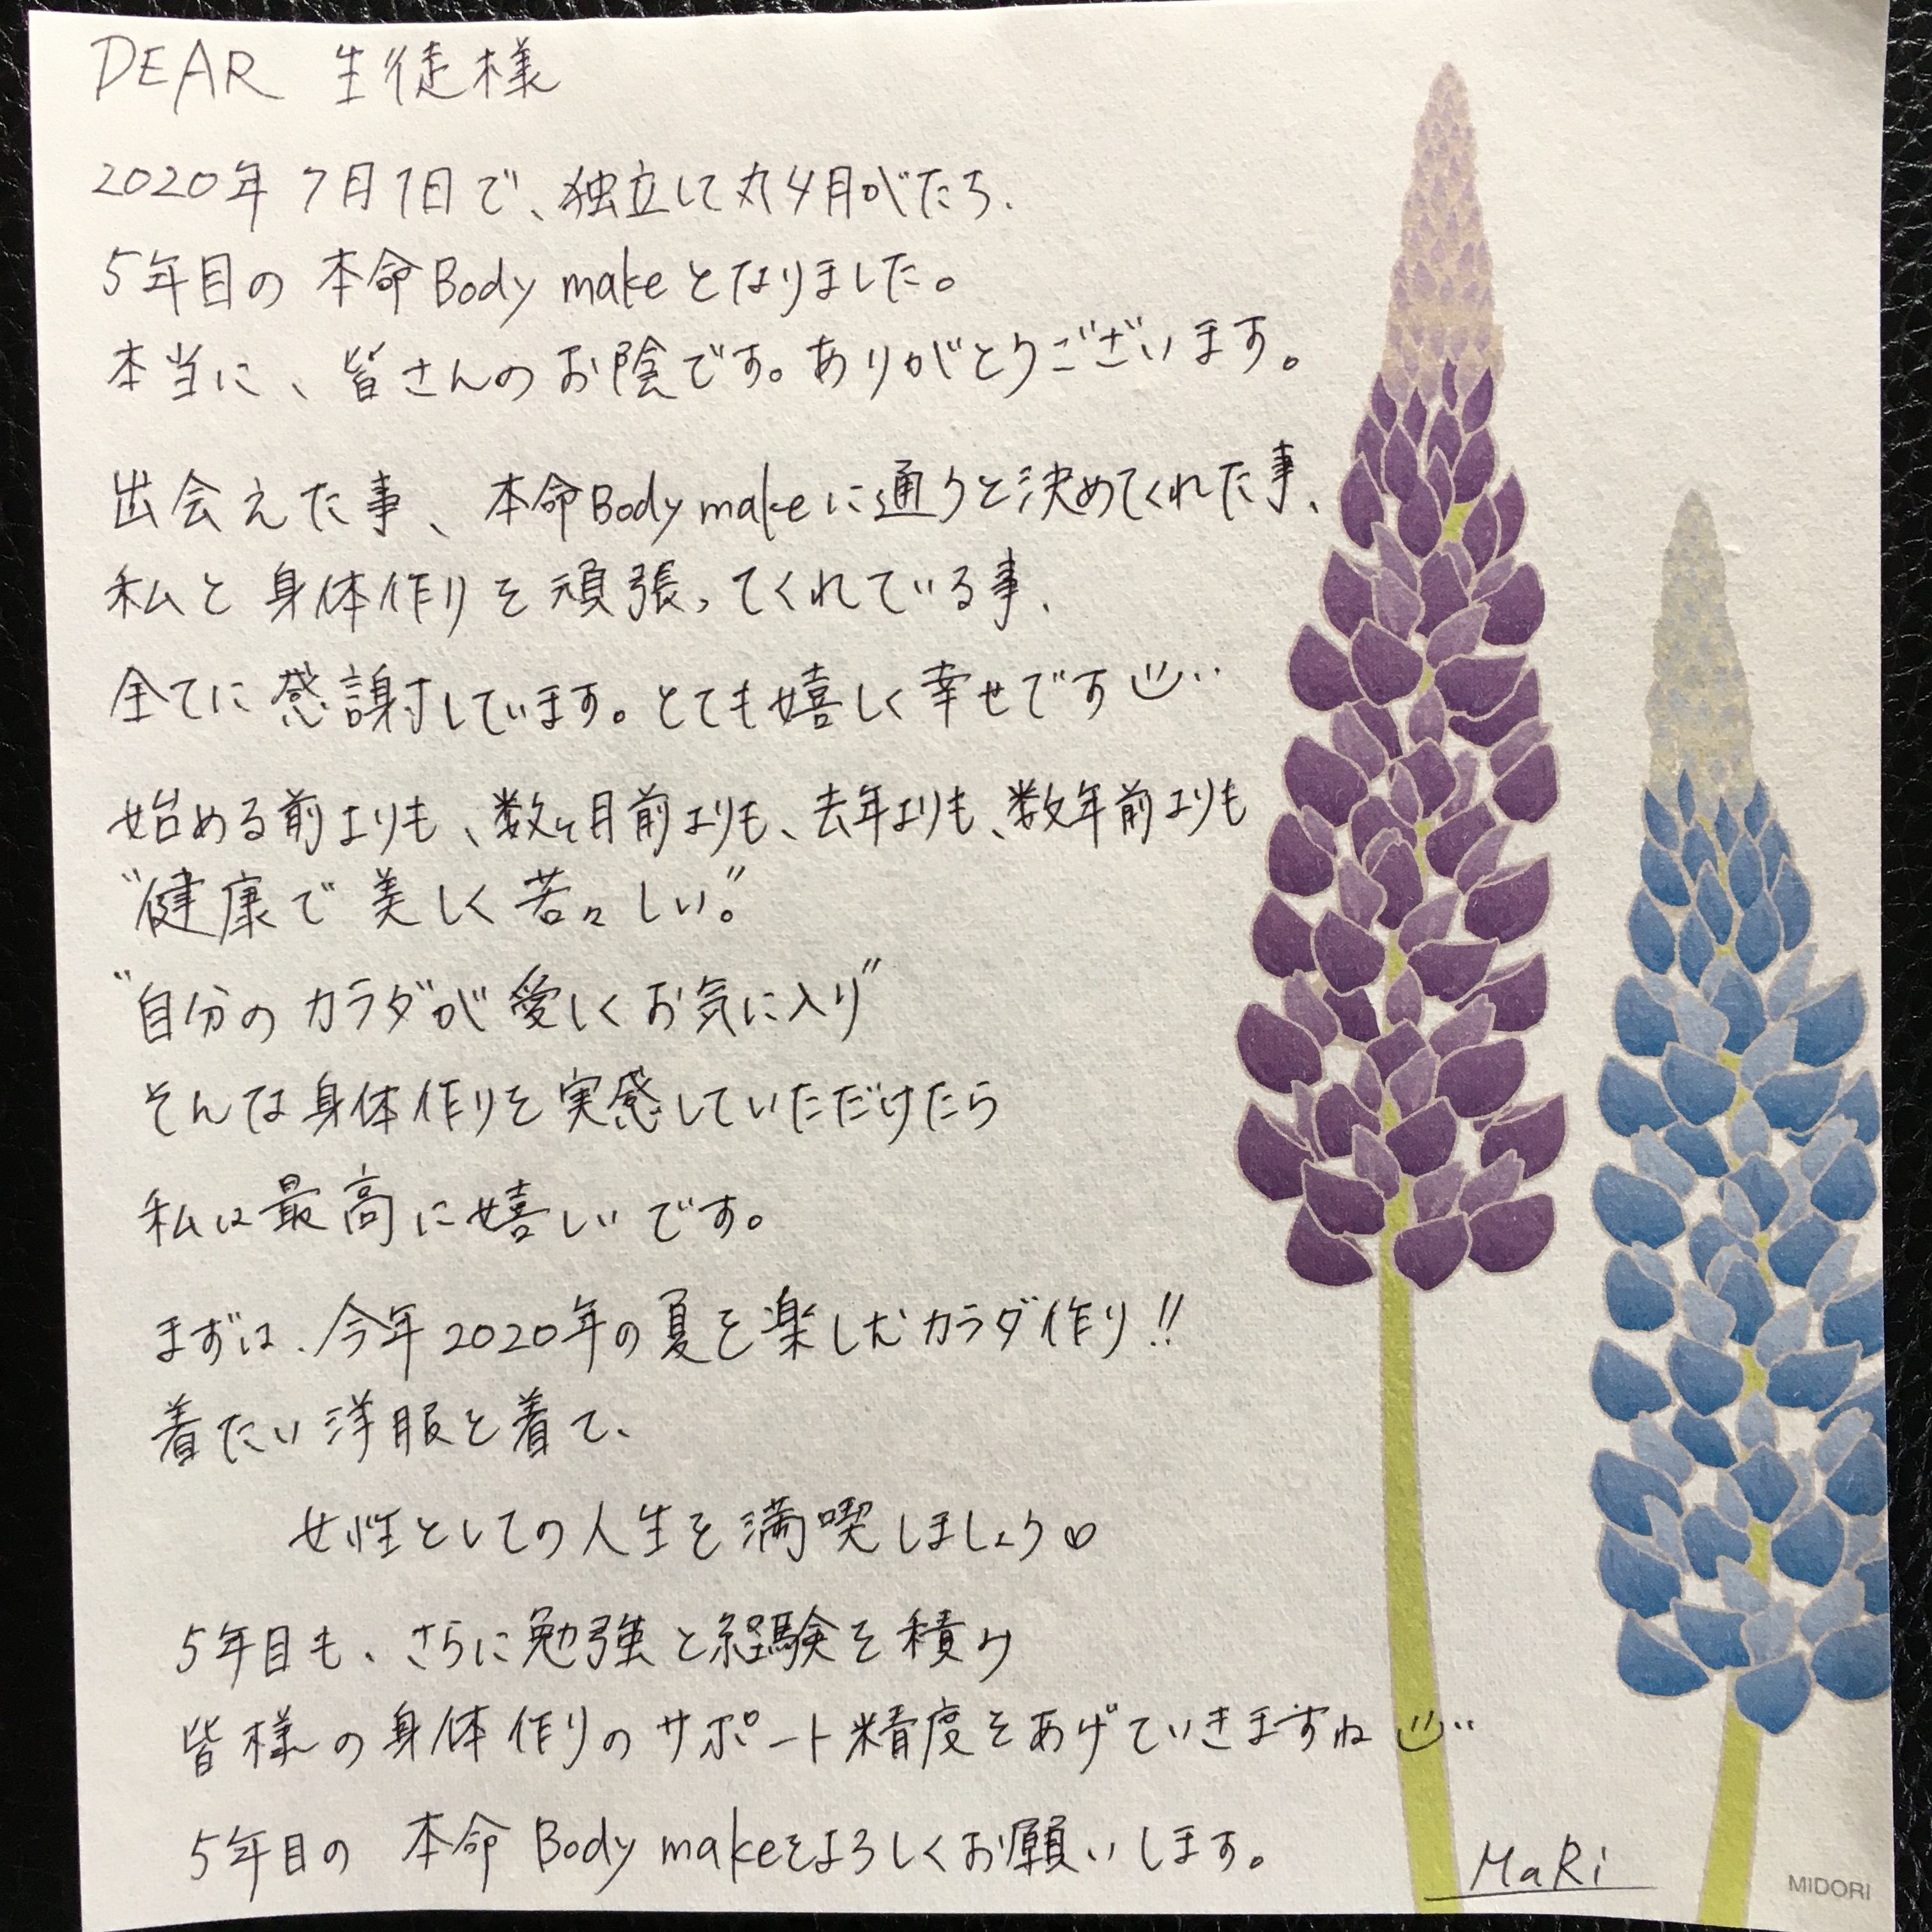 DEAR 生徒様
2020年7月1日で、独立して丸4月がたち、
5年目の 本命Body makeとなりました。
本当に、皆さんのお陰です。ありがとうございます。
出会えた事、本命Body makeに通うと決めてくれた事、
私と身体作りを頑張ってくれている事、
全てに感謝しています。とても嬉しく幸せです
始める前よりも、数ヶ月前よりも、去年よりも、数年前よりも
"健康で美しく若々しい。"
"自分のカラダが愛しくお気に入り"
そんな身体作りを実感していただけたら
私は最高に嬉しいです。
まずは、今年2020年の夏を楽しむカラダ作り!!
着たい洋服を着て、
女性としての人生を満喫しましょう♡
5年目も、さらに勉強と経験を積み
皆様の身体作りのサポート精度をあげていきますね
5年目の 本命 Body makeをよろしくお願いします。
MaRi
MIDORI